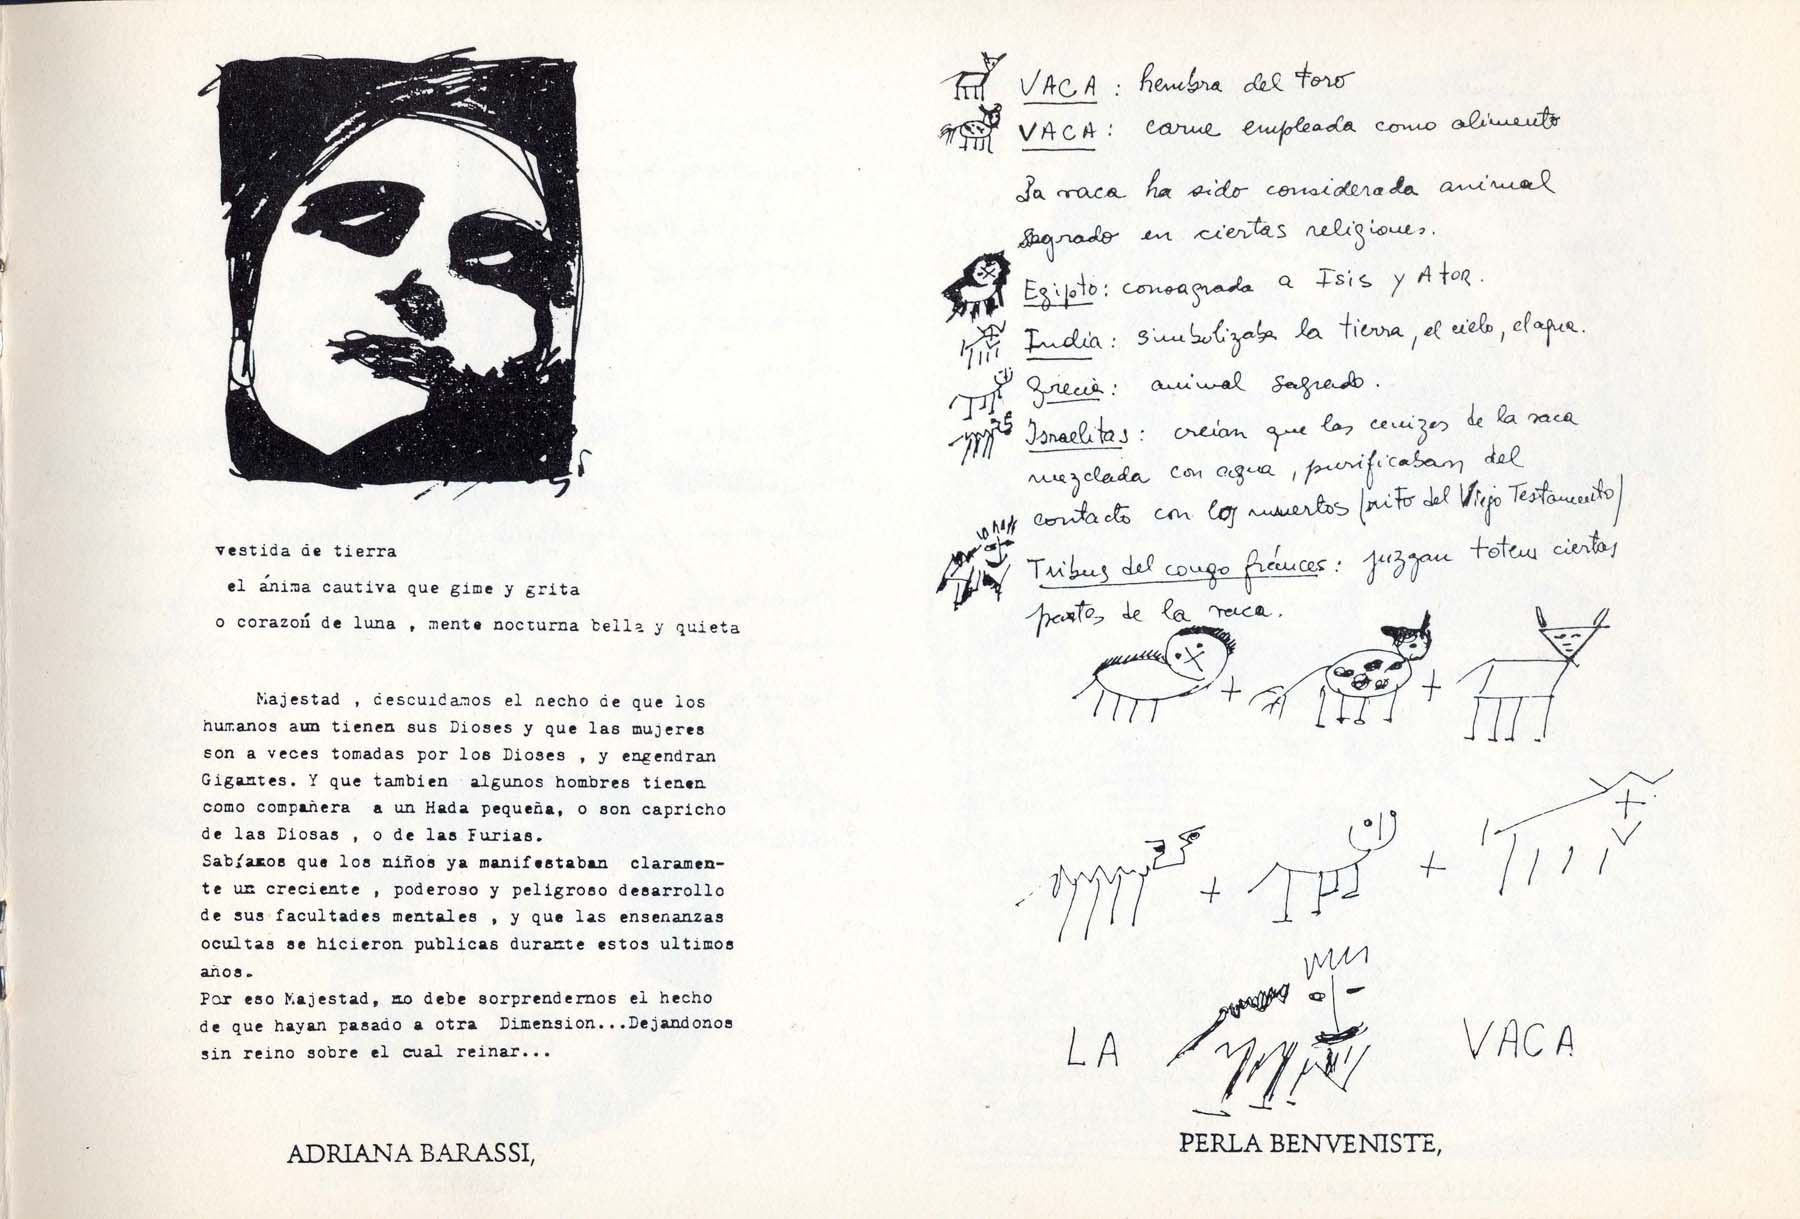 vestida de tierra
el ánima cautiva que gime y grita
o corazoń de luna , mente nocturna bella y quieta
Majestad , descuidamos el necho de que los
humanos aun tienen sus Dioses y que las mujeres
son a veces tomadas por los Dioses , y engendran
Gigantes. Y que tambien algunos hombres tienen
como compañera a un Hada pequeña, o son capricho
de las Diosas , o de las Furias.
Sabíamos que los niños ya manifestaban claramen-
te un creciente , poderoso y peligroso desarrollo
de sus facultades mentales , y que las ensenanzas
ocultas se hicieron publicas durante estos ultimos
años.
Por eso Majestad, no debe sorprendernos el hecho
de que hayan pasado a otra Dimension...Dejandonos
sin reino sobre el cual reinar...
ADRIANA BARASSI,
VACA : hembra del toro
VACA : carne empleada como alimento
La vaca ha sido considerada animal
sagrado en ciertas religiones.
Egipto : consagrada a Isis y Ator.
India : simbolizaba la tierra, el cielo, el agua.
Grecia : animal sagrado.
Israelitas : creían que las cenizas de la vaca
mezclada con agua, purificaban del
contacto con los muertos (rito del Viejo Testamento)
Tribus del congo fránces : juzgan totem ciertas
partes de la vaca.
+ +
+ +
LA VACA
PERLA BENVENISTE,